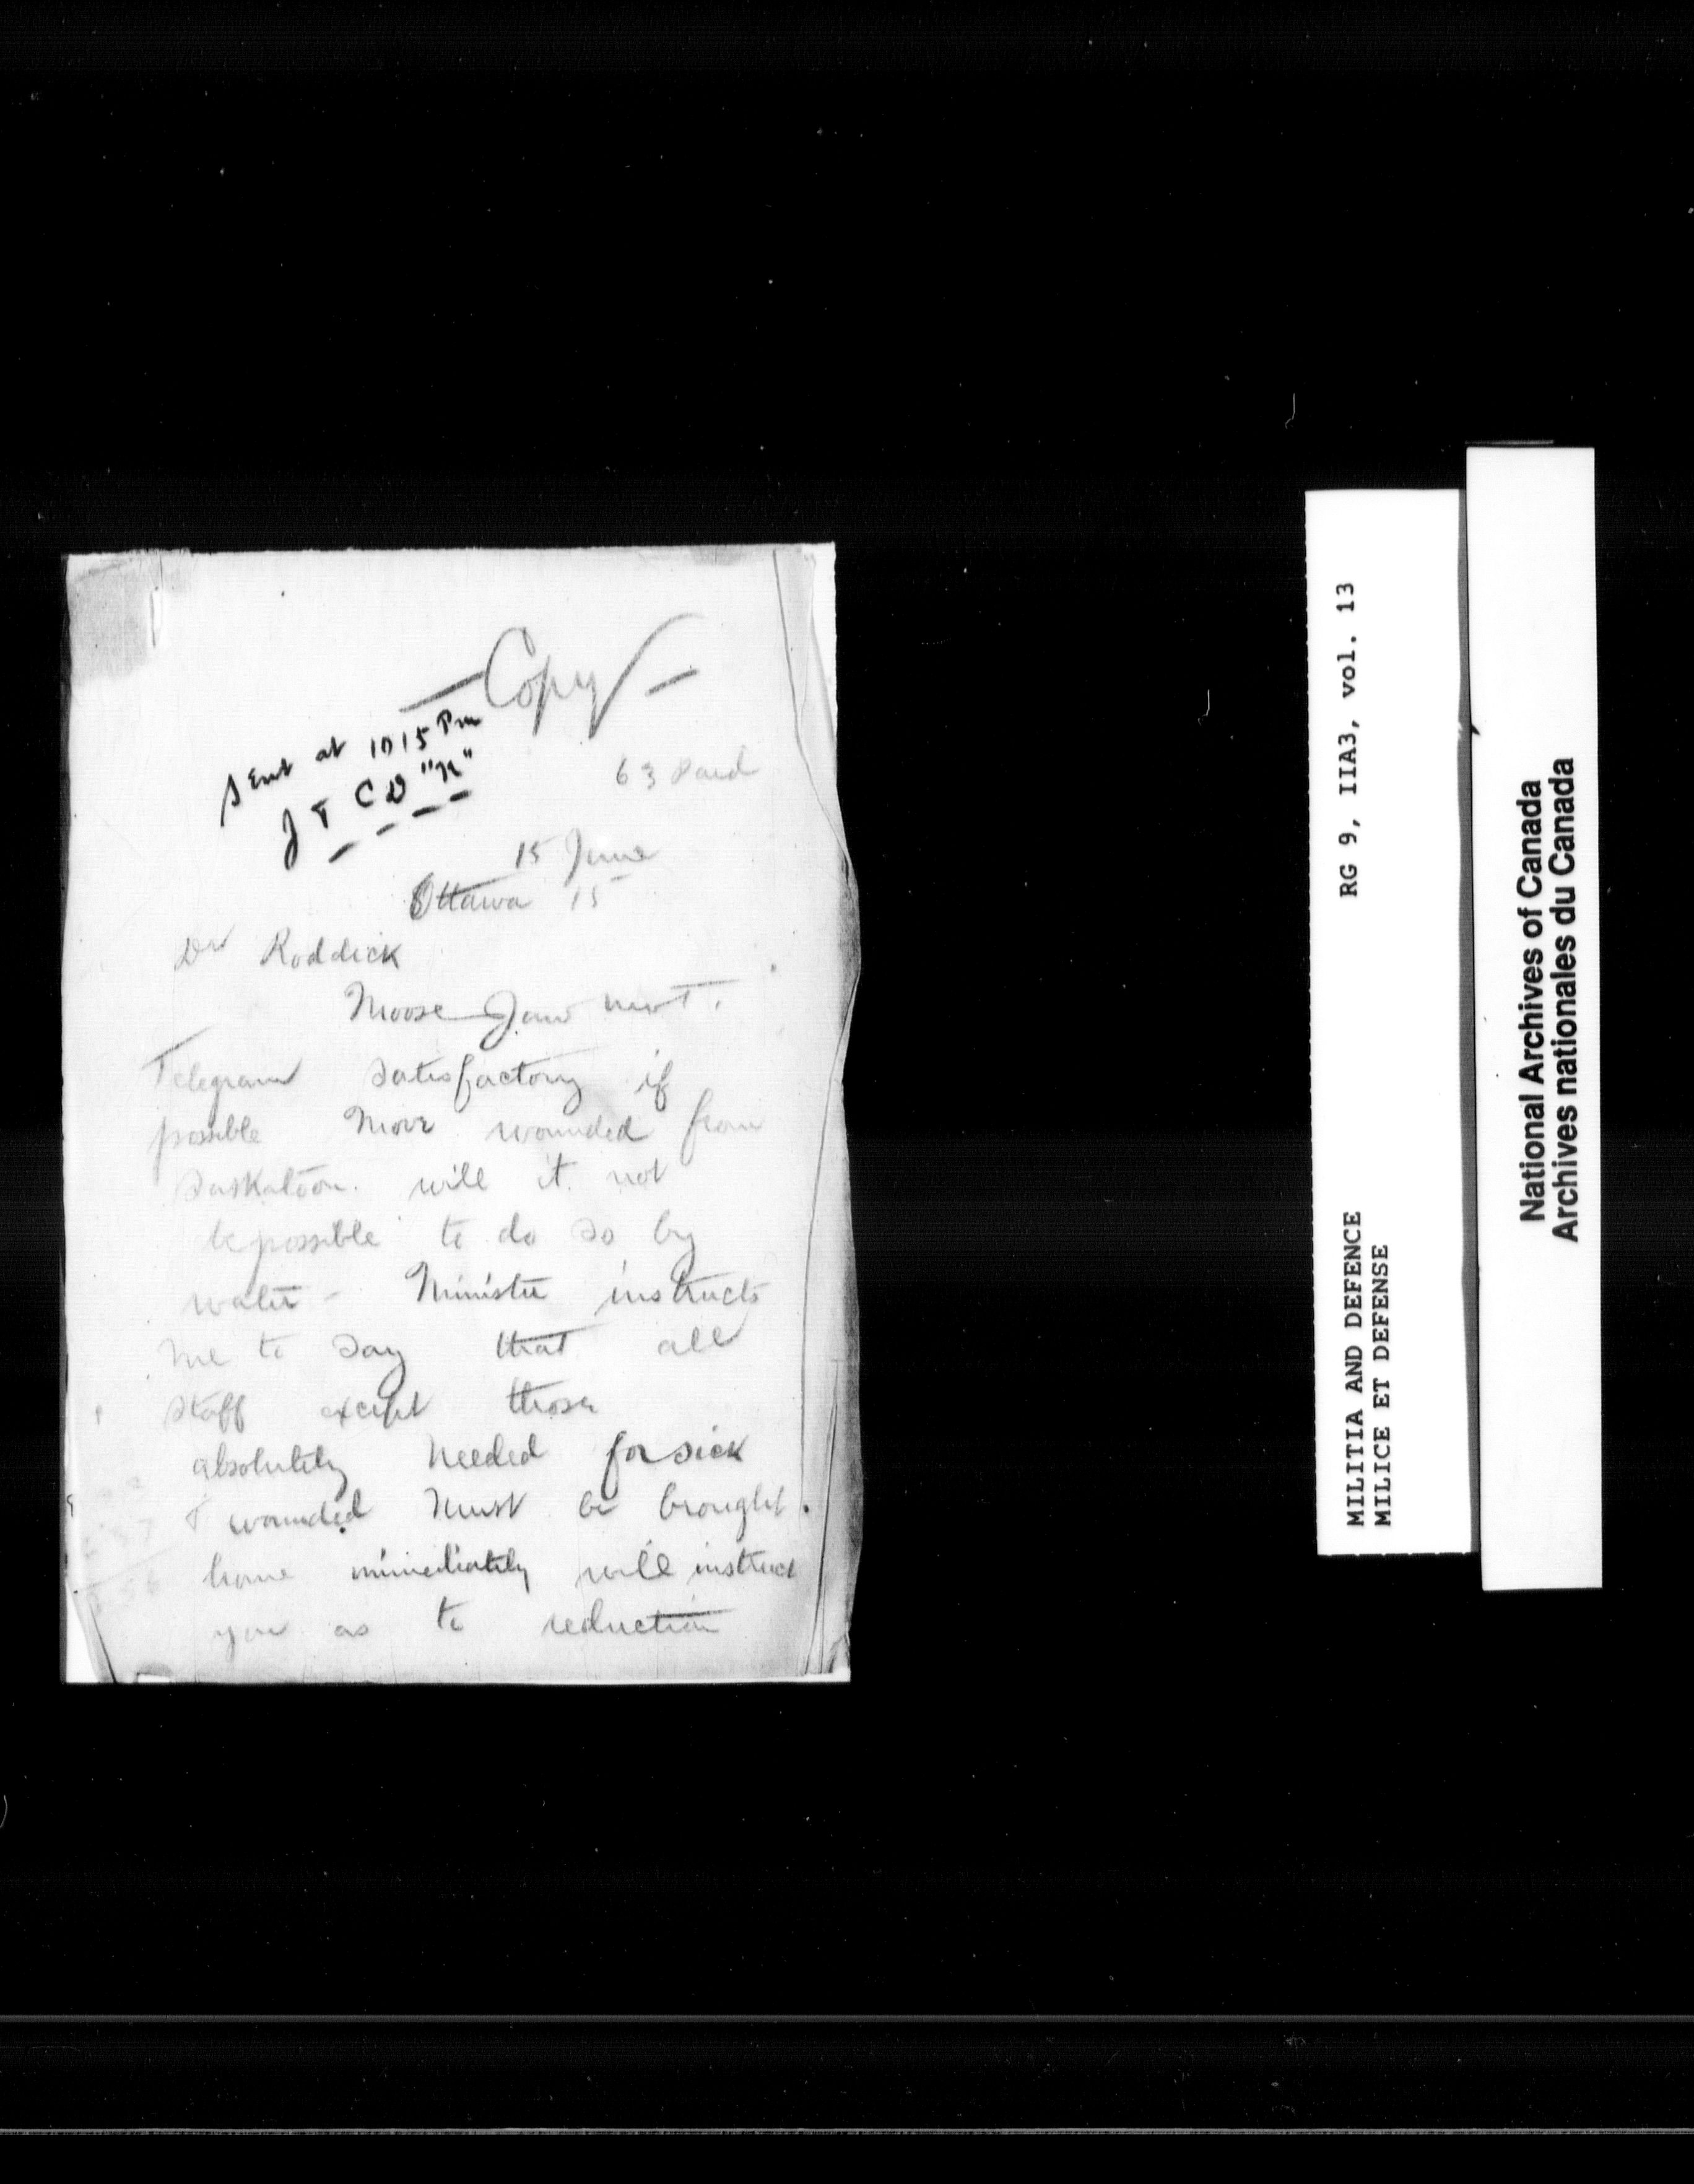 Copy
Sent at 1015 Pm
J T C D "N"
63 Paid
15 June
Ottawa 15
Dr Roddick
Moose Jaw NWT.
Telegram satisfactory if
possible move wounded from
Saskatoon. will it not
be possible to do so by
water - Minister instructs
me to say that all
staff except those
absolutely needed for sick
& wounded must be brought.
home immediately will instruct
you as to reduction
RG 9, IIA3, vol. 13
MILITIA AND DEFENCE
MILICE ET DEFENSE
National Archives of Canada
Archives nationales du Canada